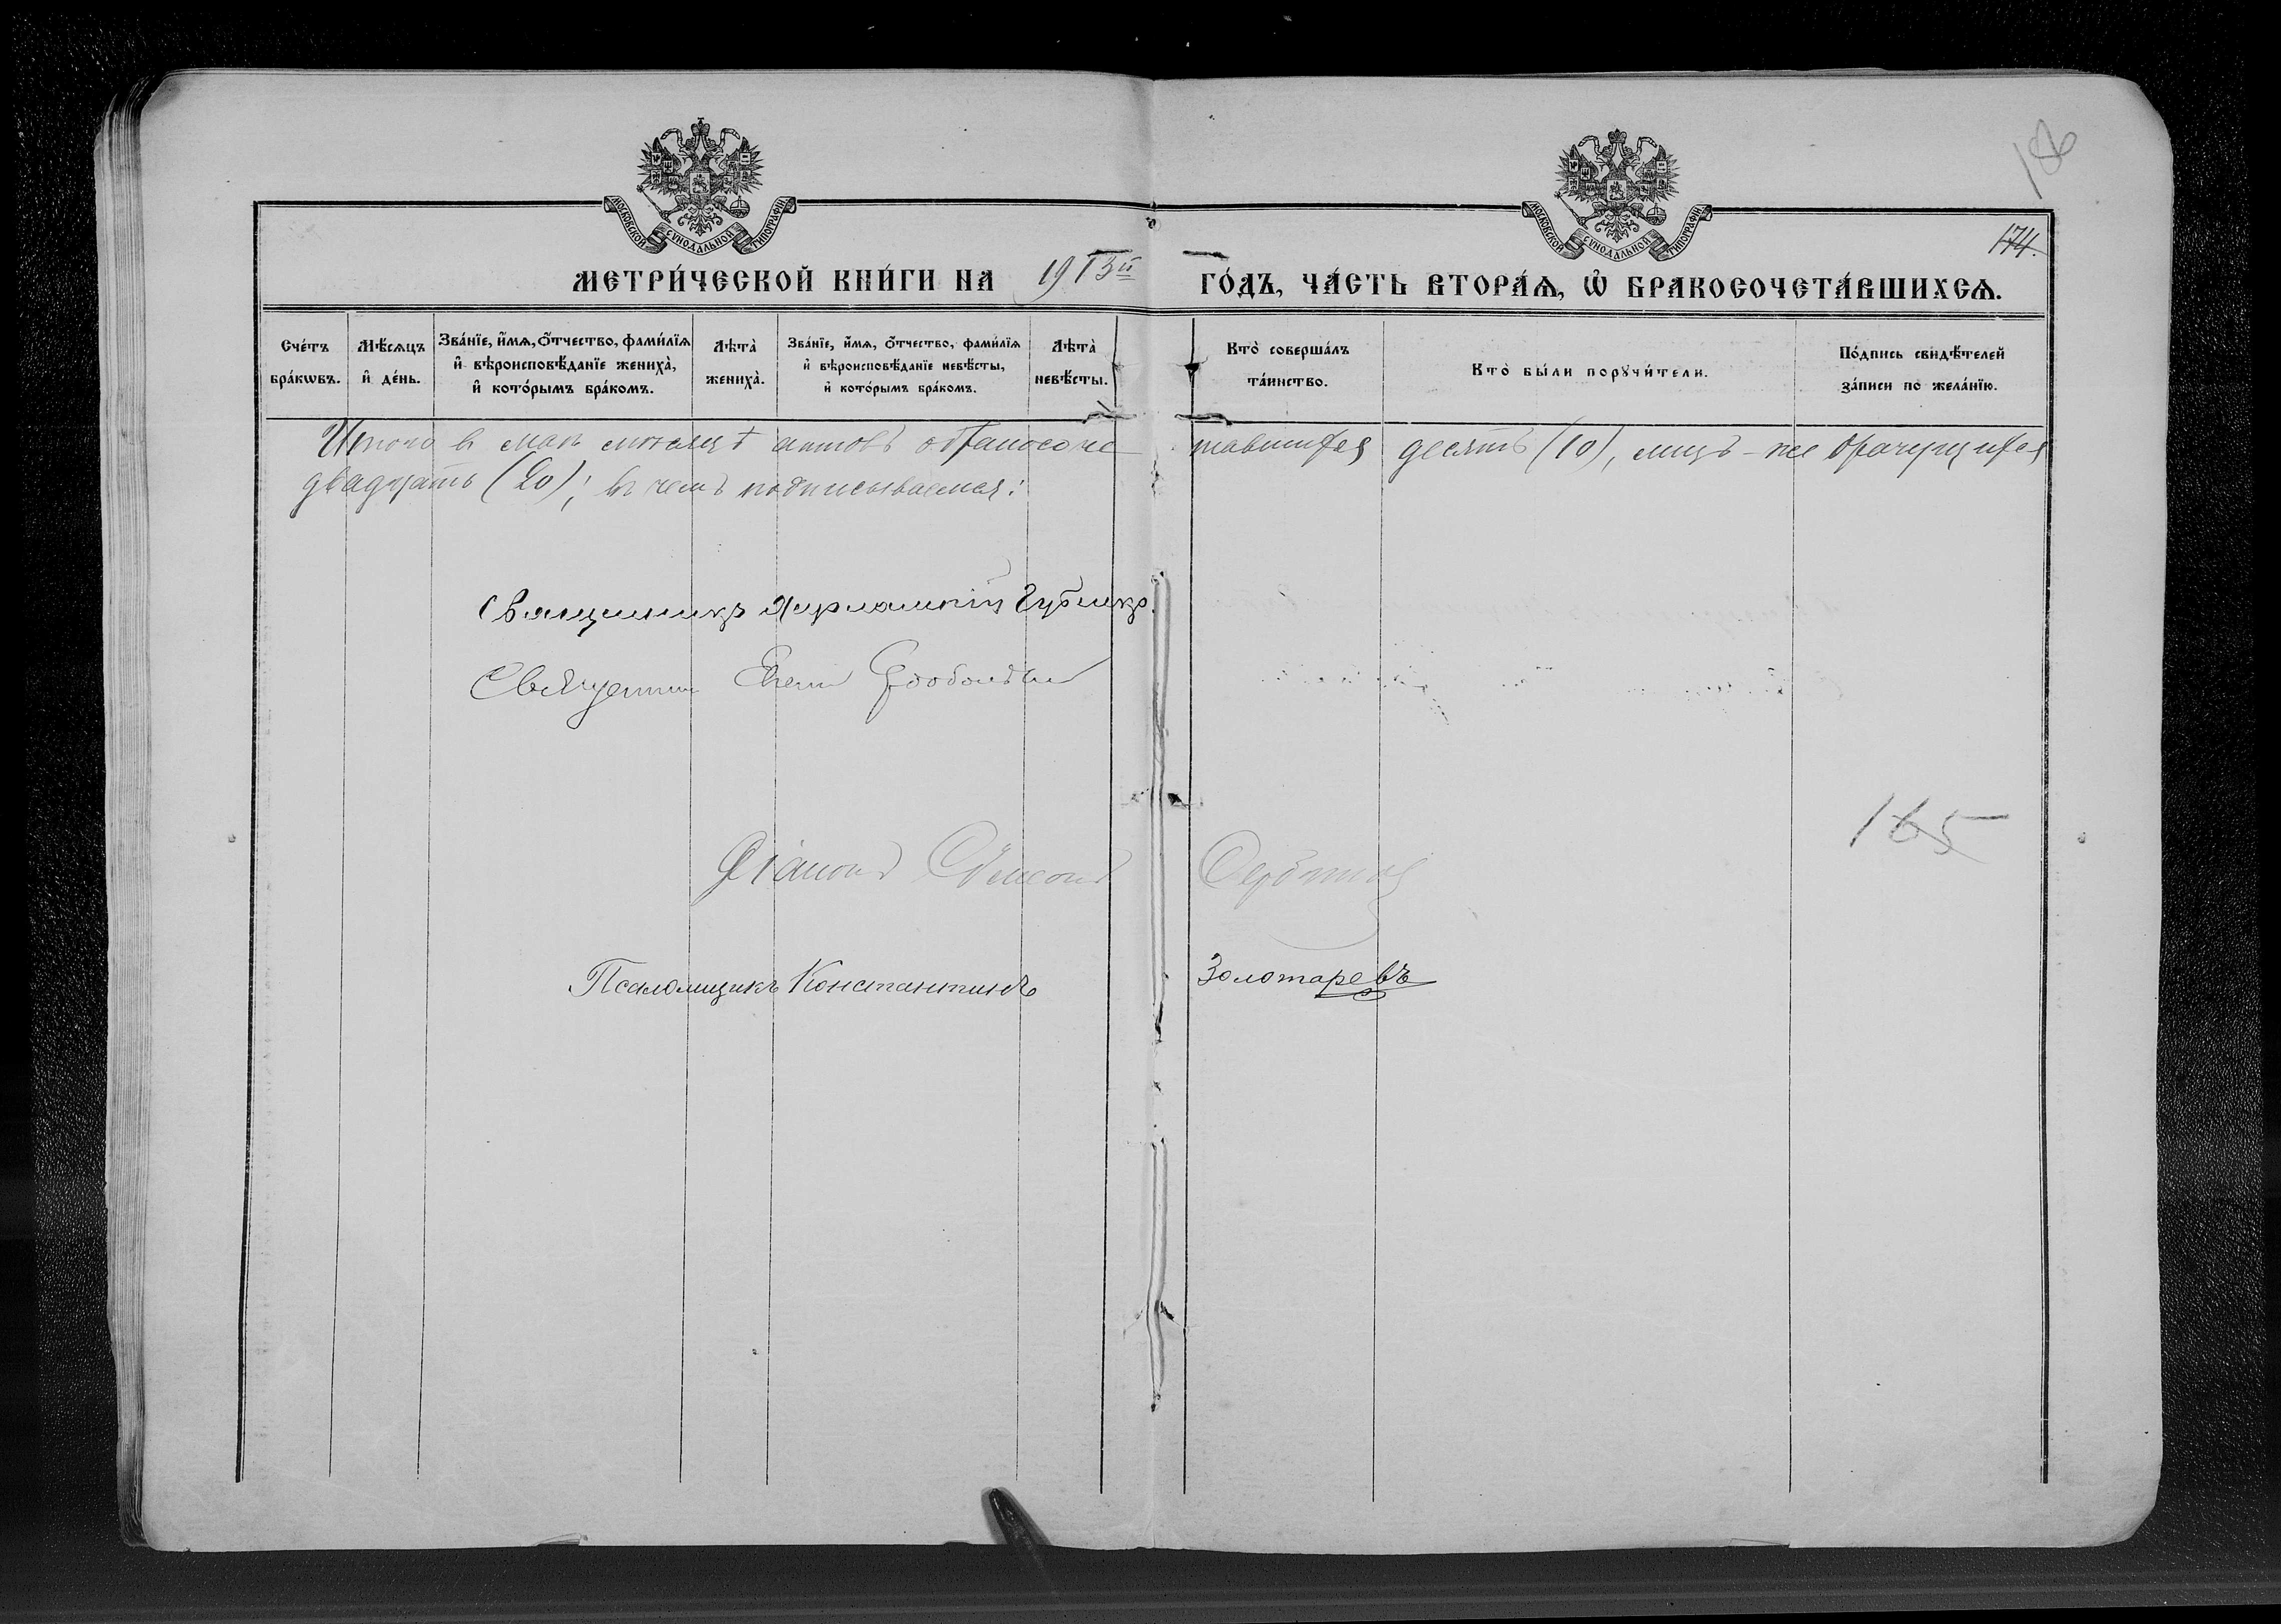 186
МОСКОВСКОЙ СУНОДАЛЬНОЙ ТИПОГРАФІИ
МОСКОВСКОЙ СУНОДАЛЬНОЙ ТИПОГРАФІИ
174.
МЕТРИ́ЧЕСКОЙ КНИ́ГИ НА 1913й ГО́ДЪ, ЧА́СТЬ ВТОРА́Ѧ, Ѽ БРАКОСОЧЕТА́ВШИХСѦ.
Сче́тъ бра́кѡвъ.
Мѣ́сѧцъ и҆ де́нь.
Зва́нїе, и҆́мѧ, ѻ҆́тчество, фами́лїѧ и҆ вѣроисповѣ́данїе жениха̀, и҆ кото́рымъ бра́комъ.
Лѣта̀ жениха̀.
Зва́нїе, и҆́мѧ, ѻ҆́тчество, фами́лїѧ и҆ вѣроисповѣ́данїе невѣ́сты, и҆ кото́рымъ бра́комъ.
Лѣта̀ невѣ́сты.
Кто̀ соверша́лъ та́инство.
Кто̀ бы́ли порꙋчи́тели.
По́дпись свидѣ́телей за́писи по жела́нїю.
Итого въ маѣ мѣсяцѣ актовъ о бракосоче- тавшихся десять (10), лицъ-же брачущихся
двадцать (20); въ чемъ подписываемся:
Священникъ Харлампій Губинъ.
Священникъ
165
Діаконъ Симеонъ
Псаломщикъ Константинъ Золотаревъ